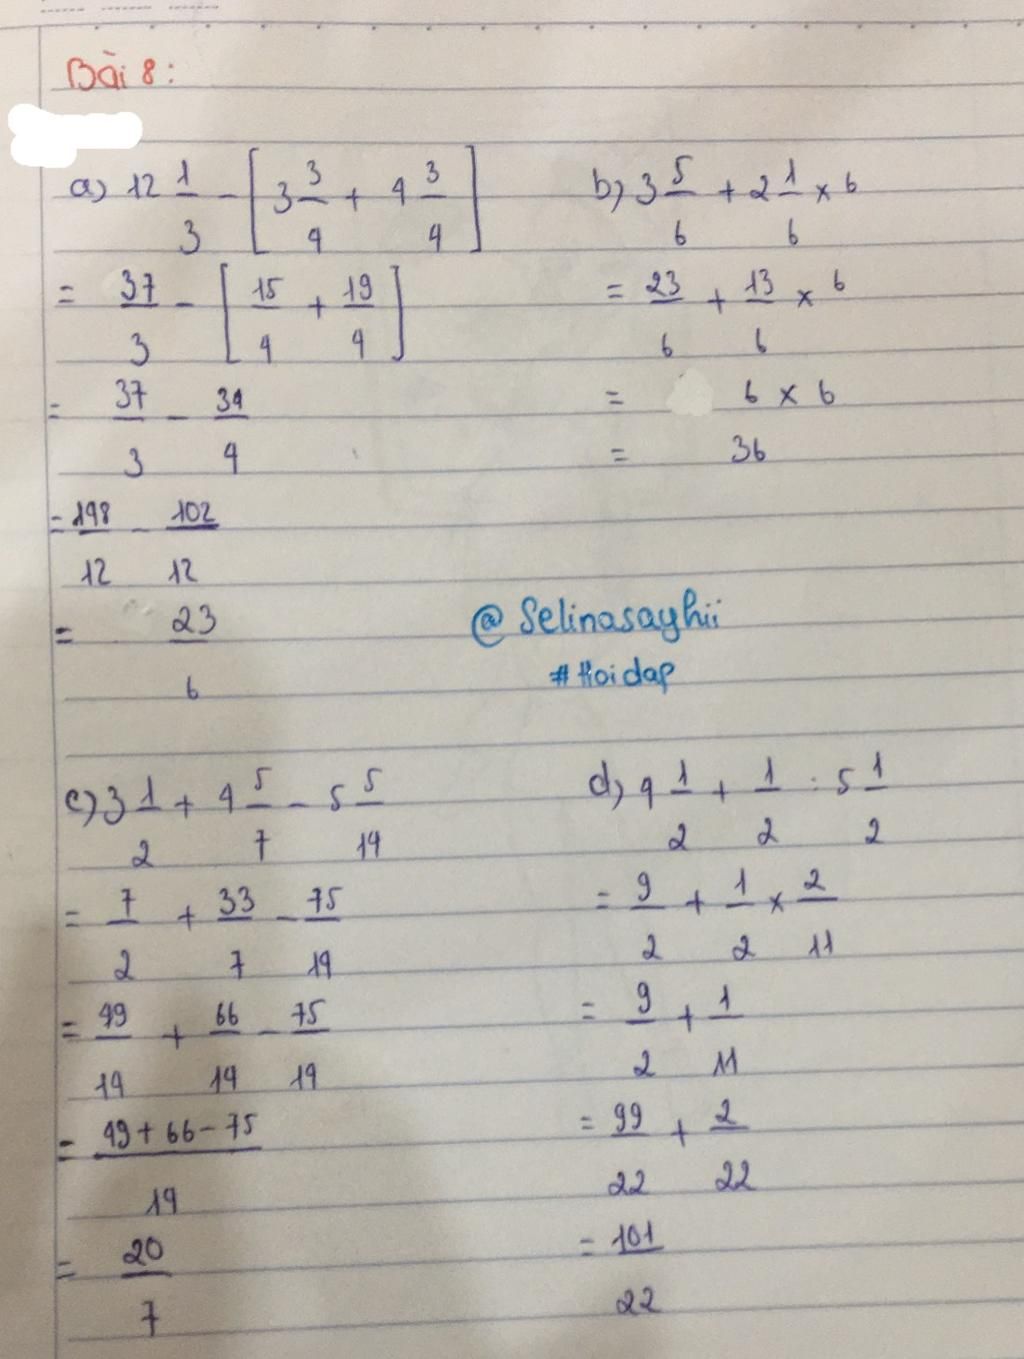 Bài 8:
a) 12 1/3 - [3 3/4 + 4 3/4]
= 37/3 - [15/4 + 19/4]
= 37/3 - 34/4
= 148/12 - 102/12
= 23/6
b) 3 5/6 + 2 1/6 x 6
= 23/6 + 13/6 x 6
= 6 x 6
= 36
@ Selinasayhii
# Hoidap
c) 3 1/2 + 4 5/7 - 5 5/14
= 7/2 + 33/7 - 75/14
= 49/14 + 66/14 - 75/14
= 49 + 66 - 75/14
= 20/7
d) 4 1/2 + 1/2 : 5 1/2
= 9/2 + 1/2 x 2/11
= 9/2 + 1/11
= 99/22 + 2/22
= 101/22